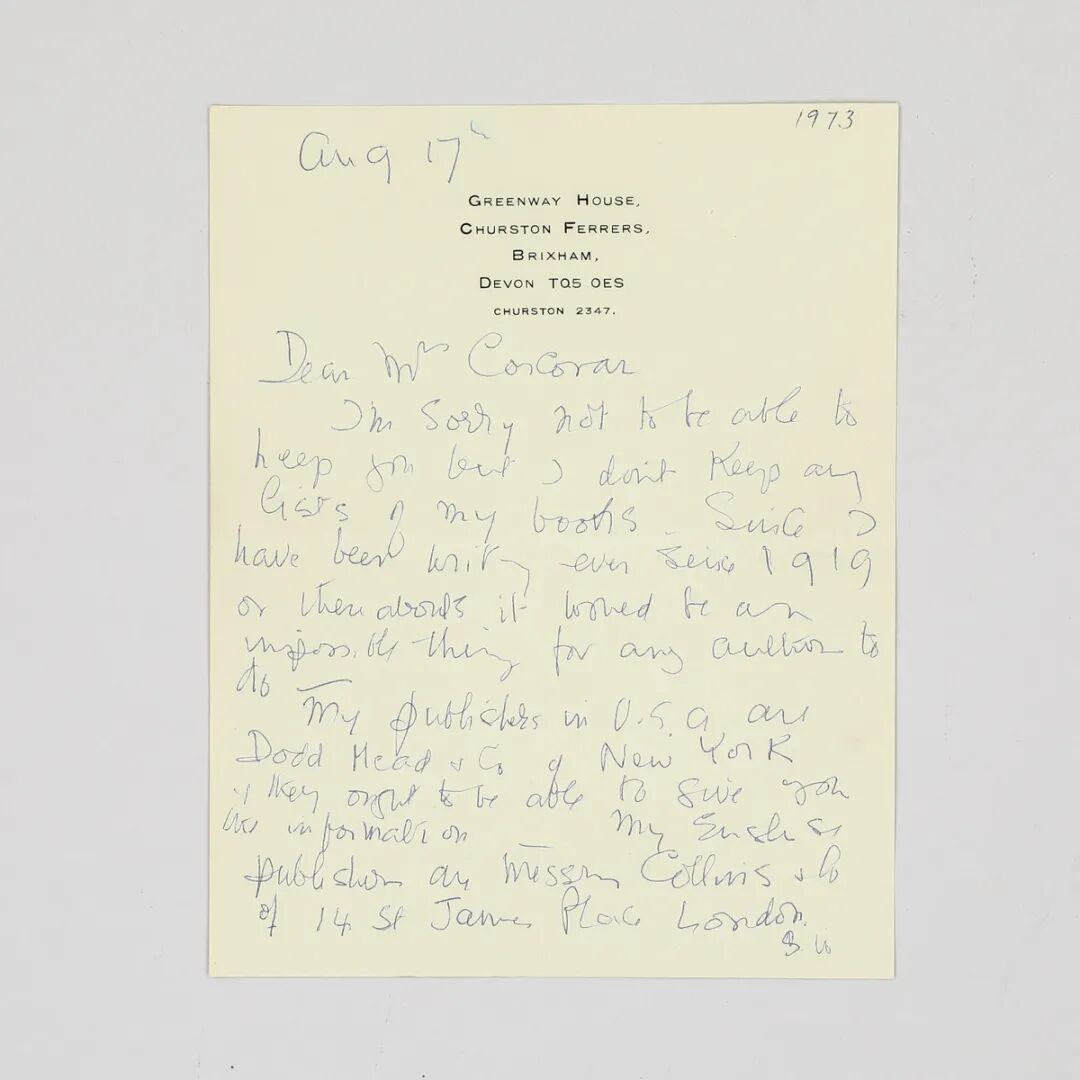 1973
Aug 17th
GREENWAY HOUSE,
CHURSTON FERRERS,
BRIXHAM,
DEVON TQ5 OES
CHURSTON 2347.
Dear Mrs Corcoran
I'm Sorry not to be able to
help you but I don't Keep any
lists of my books. Since I
have been writing ever since 1919
or thereabouts it would be an
impossible thing for any author to
do —
My publishers in U.S.A are
Dodd Mead & Co of New York
& they ought to be able to give you
information My English
publishers are Messrs Collins & Co
of 14 St James Place London.
S.W